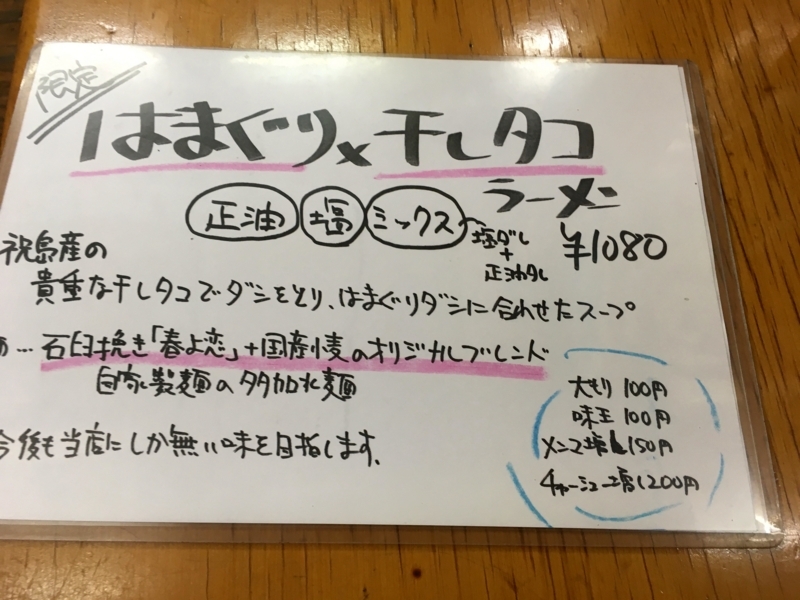 限定
はまぐり×干しタコ
ラーメン
正油 塩 ミックス
塩ダレ
+
正油ダレ
¥1080
祝島産の
貴重な干しタコでダシをとり、はまぐりダシに合わせたスープ
… 石臼挽き「春よ恋」+国産小麦のオリジナルブレンド
自家製麺の多加水麺
今後も当店にしか無い味を目指します。
大もり 100円
味玉 100円
メンマ増し150円
チャーシュー増し200円